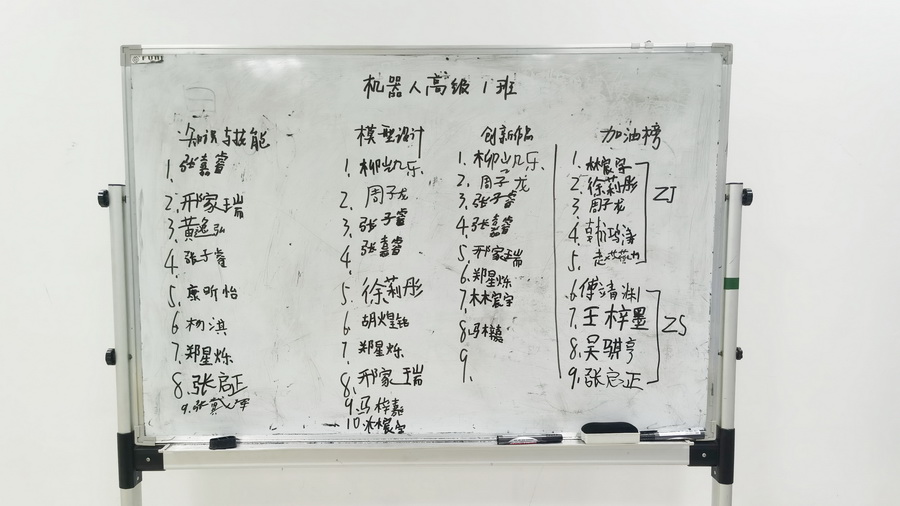 机器人高级1班
知识与技能
1. 张嘉睿
2. 邢家瑞
3. 黄逸弘
4. 张子睿
5. 康昕怡
6. 杨淇
7. 郑星烁
8. 张启正
9. 张
模型设计
1. 柳凯乐
2. 周子龙
3. 张子睿
4. 张嘉睿
5. 徐莉彤
6. 胡煌铭
7. 郑星烁
8. 邢家瑞
9. 马梓嘉
10. 林宸宇
创新作品
1. 柳凯乐
2. 周子龙
3. 张子睿
4. 张嘉睿
5. 邢家瑞
6. 郑星烁
7. 林宸宇
8. 马梓嘉
9.
加油榜
1. 林宸宇
2. 徐莉彤
3. 周子龙
4. 韩鸿泽
5.
ZJ
6. 傅靖渊
7. 王梓墨
8. 吴骐亨
9. 张启正
ZS